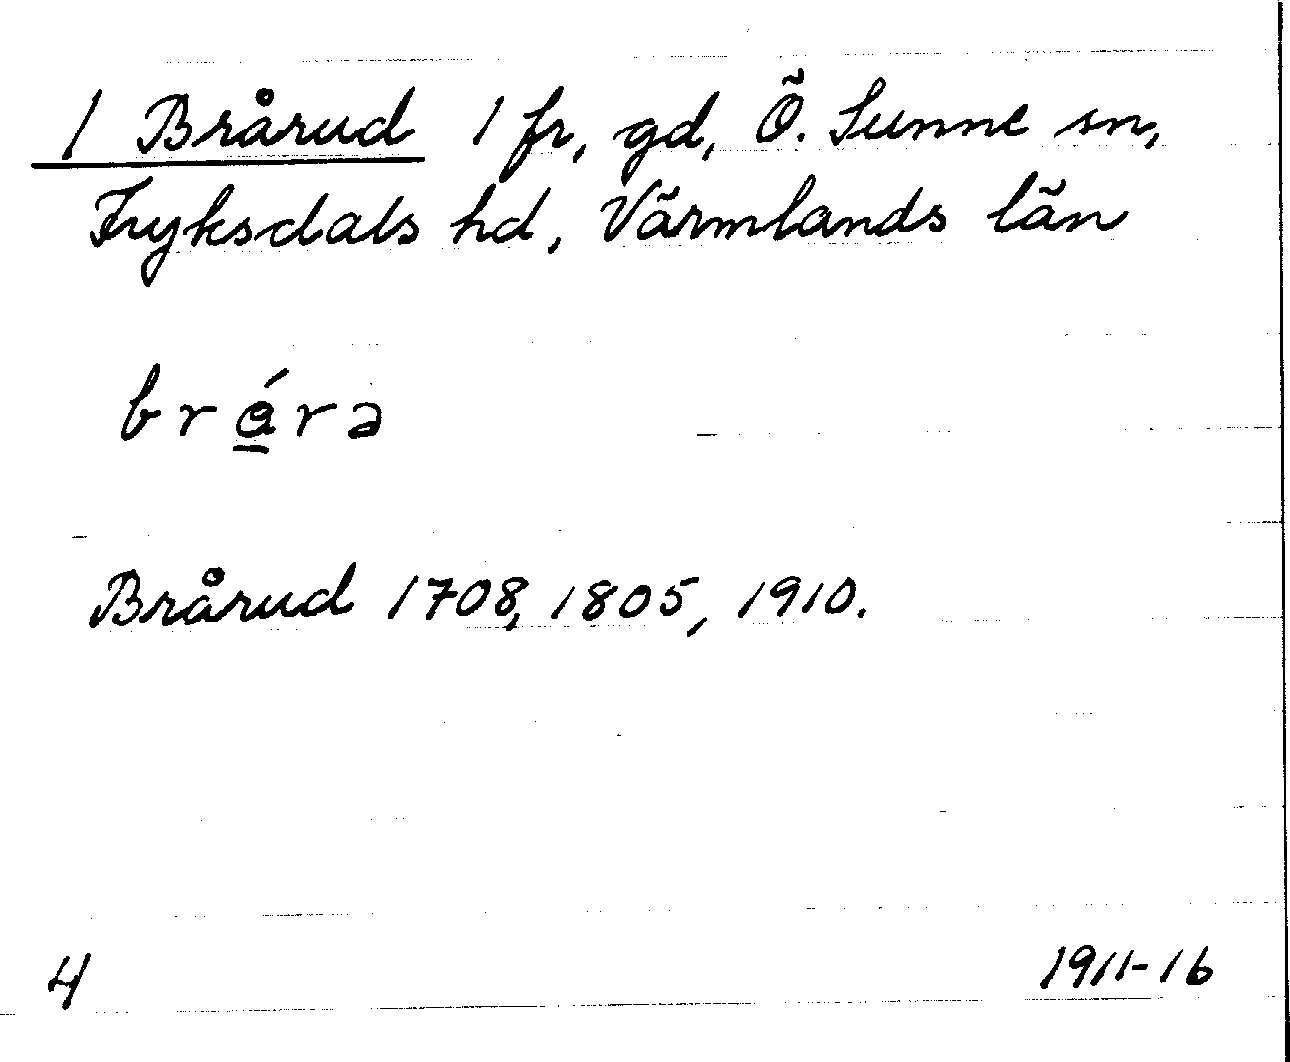 1 Brårud 1 fr, gd, Ö. Sunne sn,
Fryksdals hd, Värmlands län
brárə
Brårud 1708, 1805, 1910.
4
1911-16